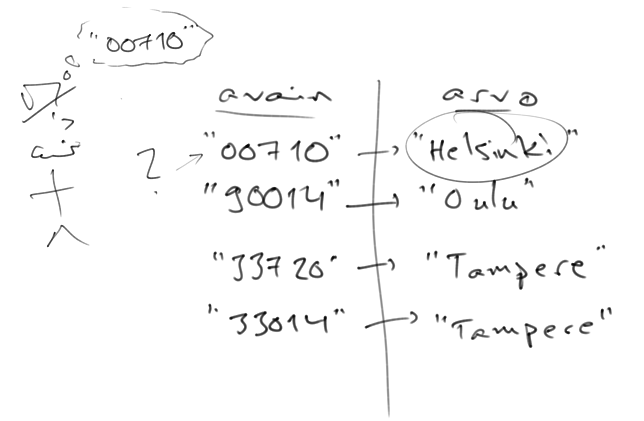 "00710"
avain arvo
? "00710" → "Helsinki"
"90014" → "Oulu"
"33720" → "Tampere"
"33014" → "Tampere"